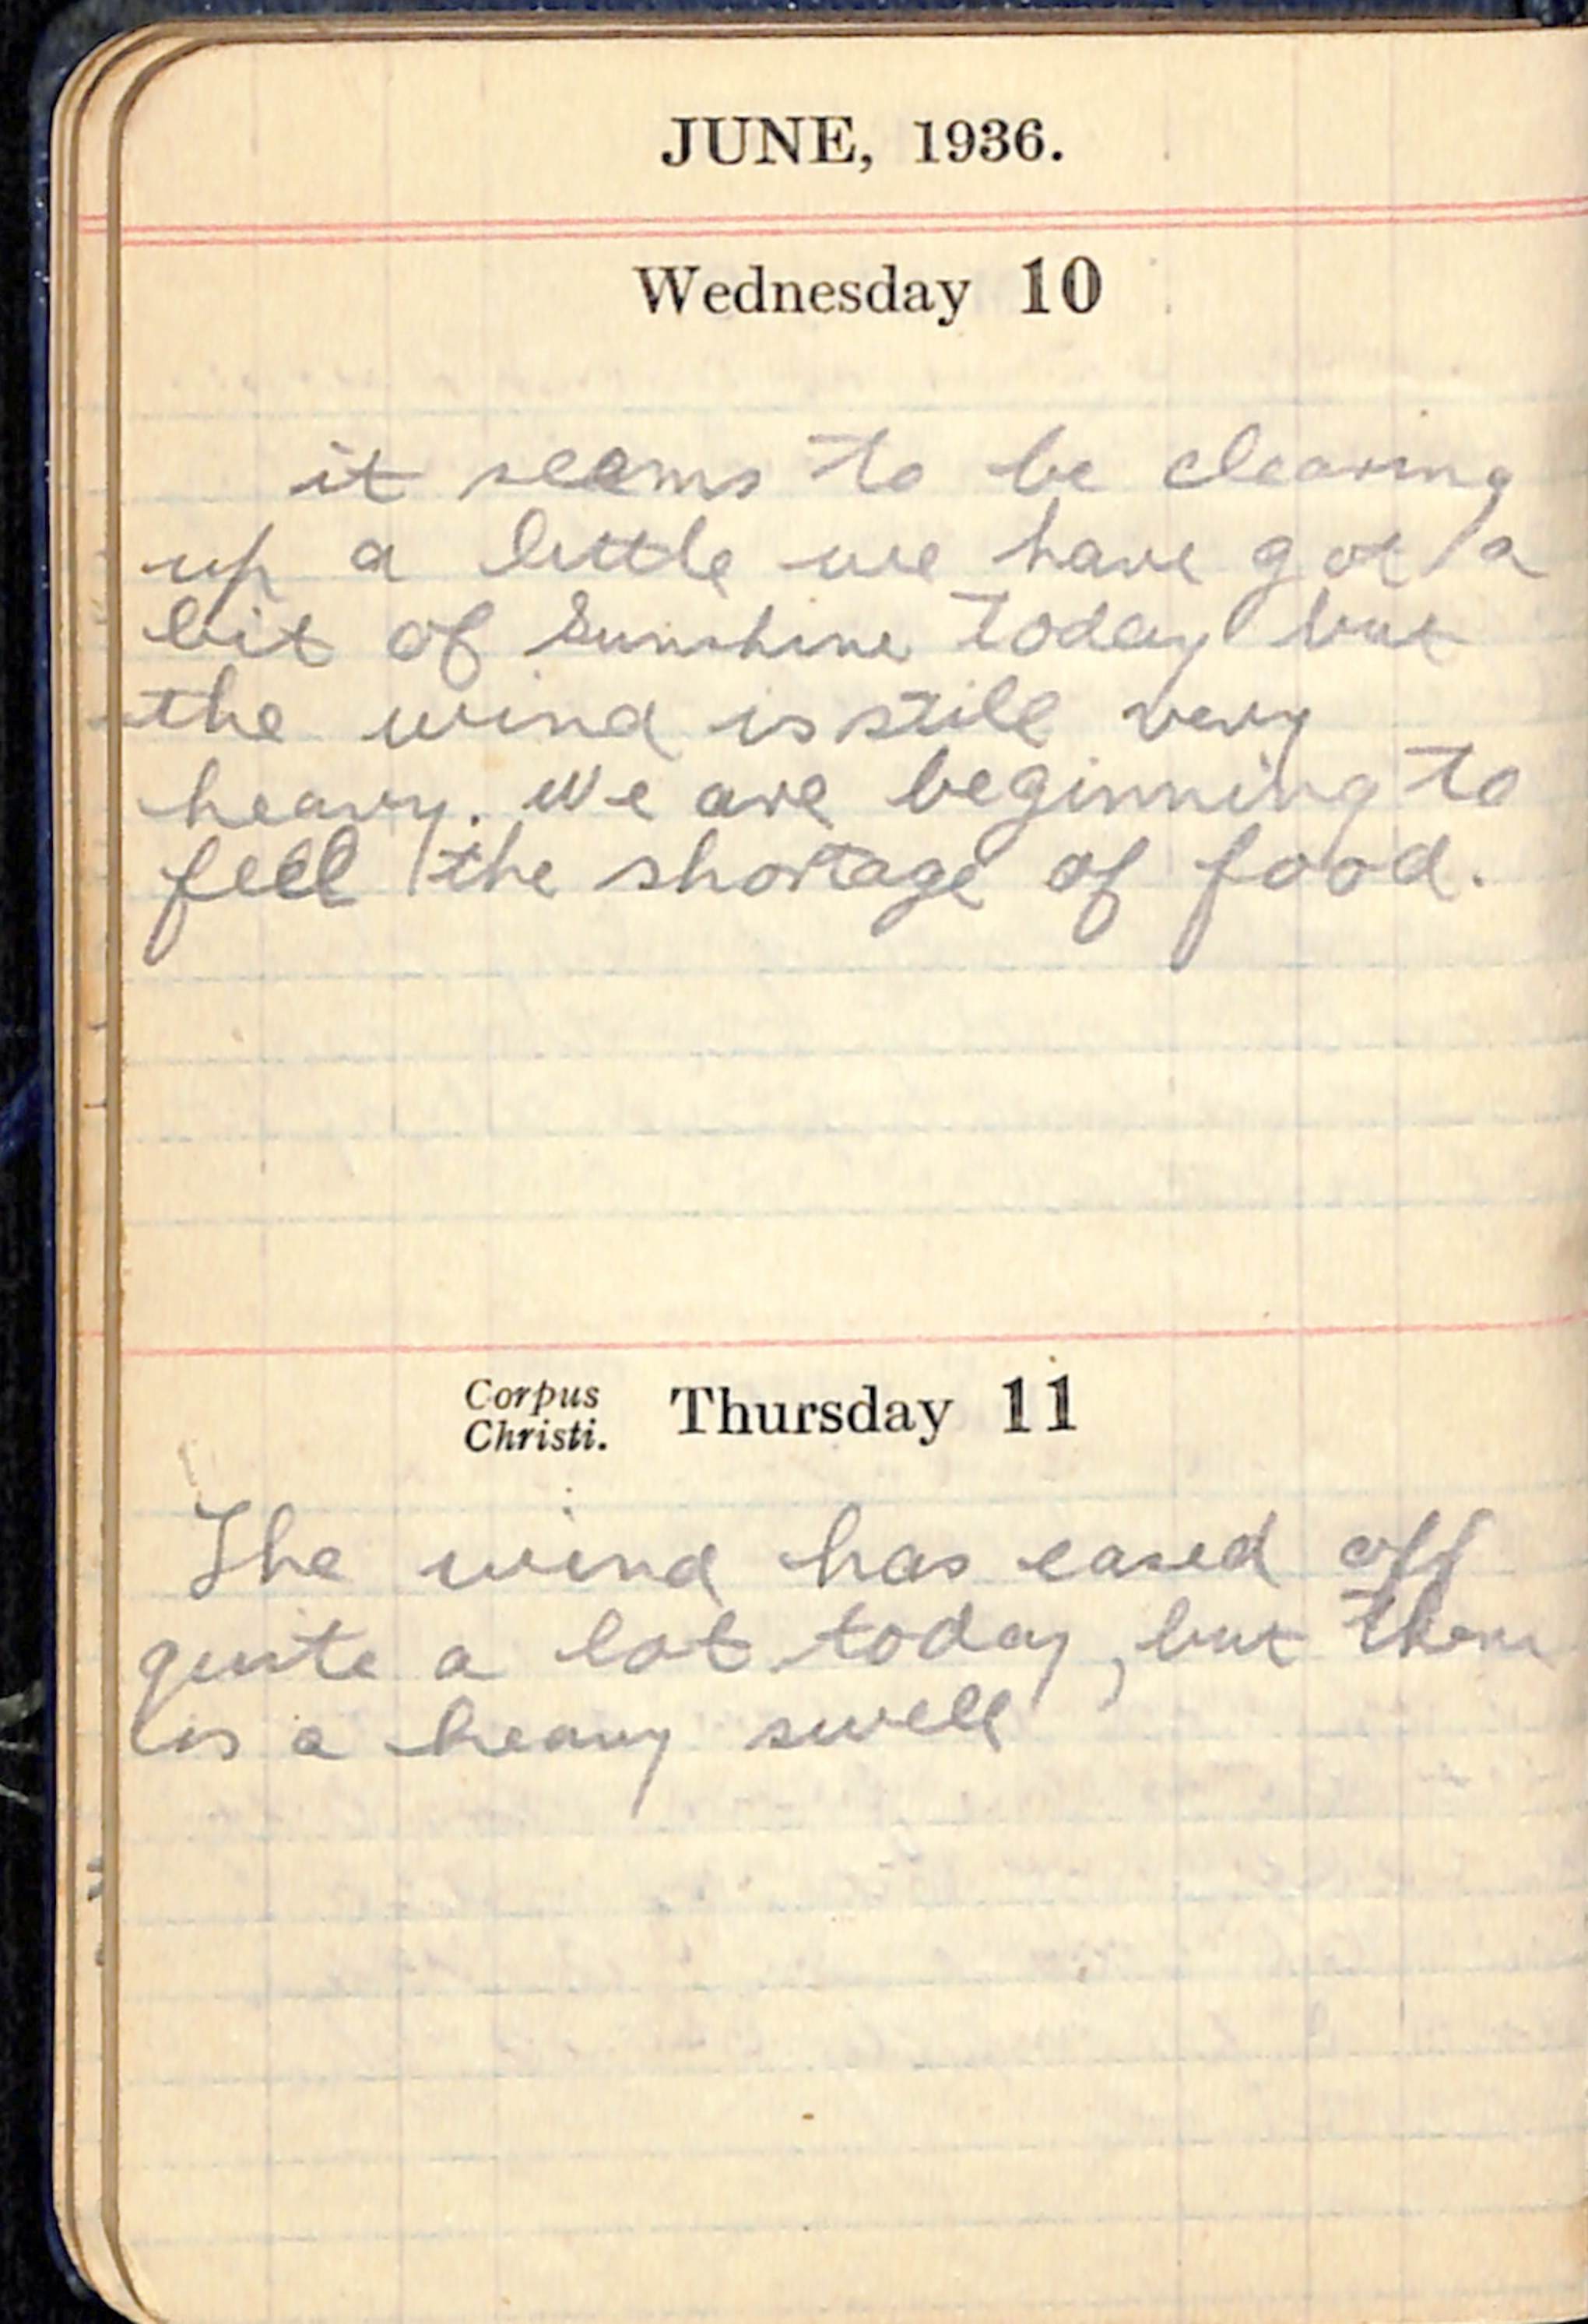 JUNE, 1936.
Wednesday 10
it seems to be clearing
up a little we have got a
bit of Sunshine today but
the wind is still very
heavy. We are beginning to
feel the shortage of food.
Corpus
Christi.
Thursday 11
The wind has eased off
quite a lot today, but there
is a heavy swell